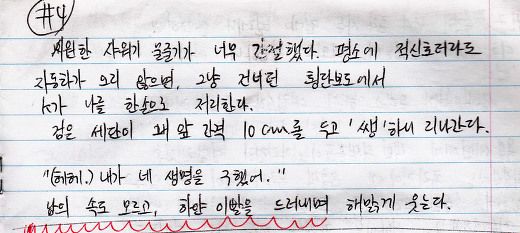 #4
시원한 샤워기 물줄기가 너무 간절했다. 평소에 적신호더라도
자동차가 오지 않으면, 그냥 건너던 횡단보도에서
k가 나를 한손으로 저리한다.
검은 세단이 코 앞 간격 10cm를 두고 '쌩'하니 지나간다.
"(헤헤.) 내가 네 생명을 구했어."
남의 속도 모르고, 하얀 이빨을 드러내며 해맑게 웃는다.